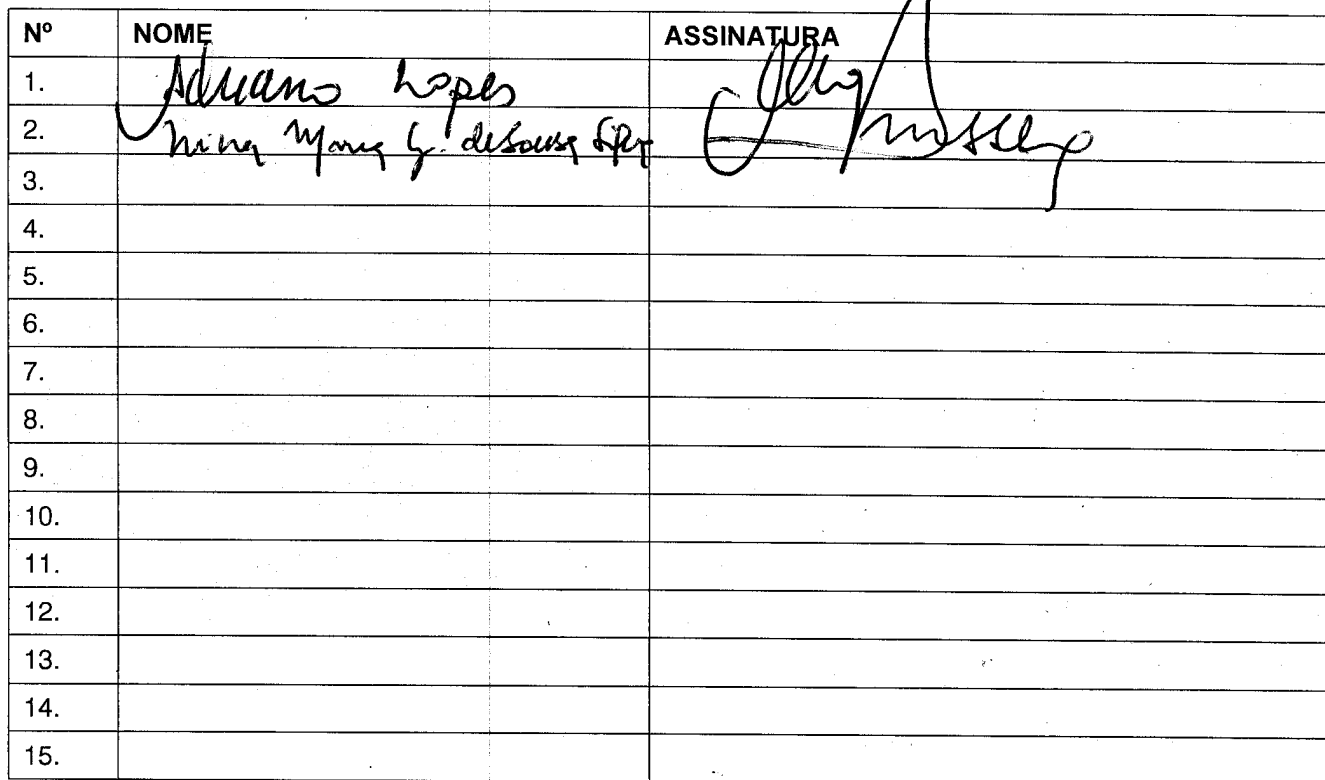 Nº NOME ASSINATURA
1. Adriano Lopes
2. Nina Maria G. de Sousa
3.
4.
5.
6.
7.
8.
9.
10.
11.
12.
13.
14.
15.